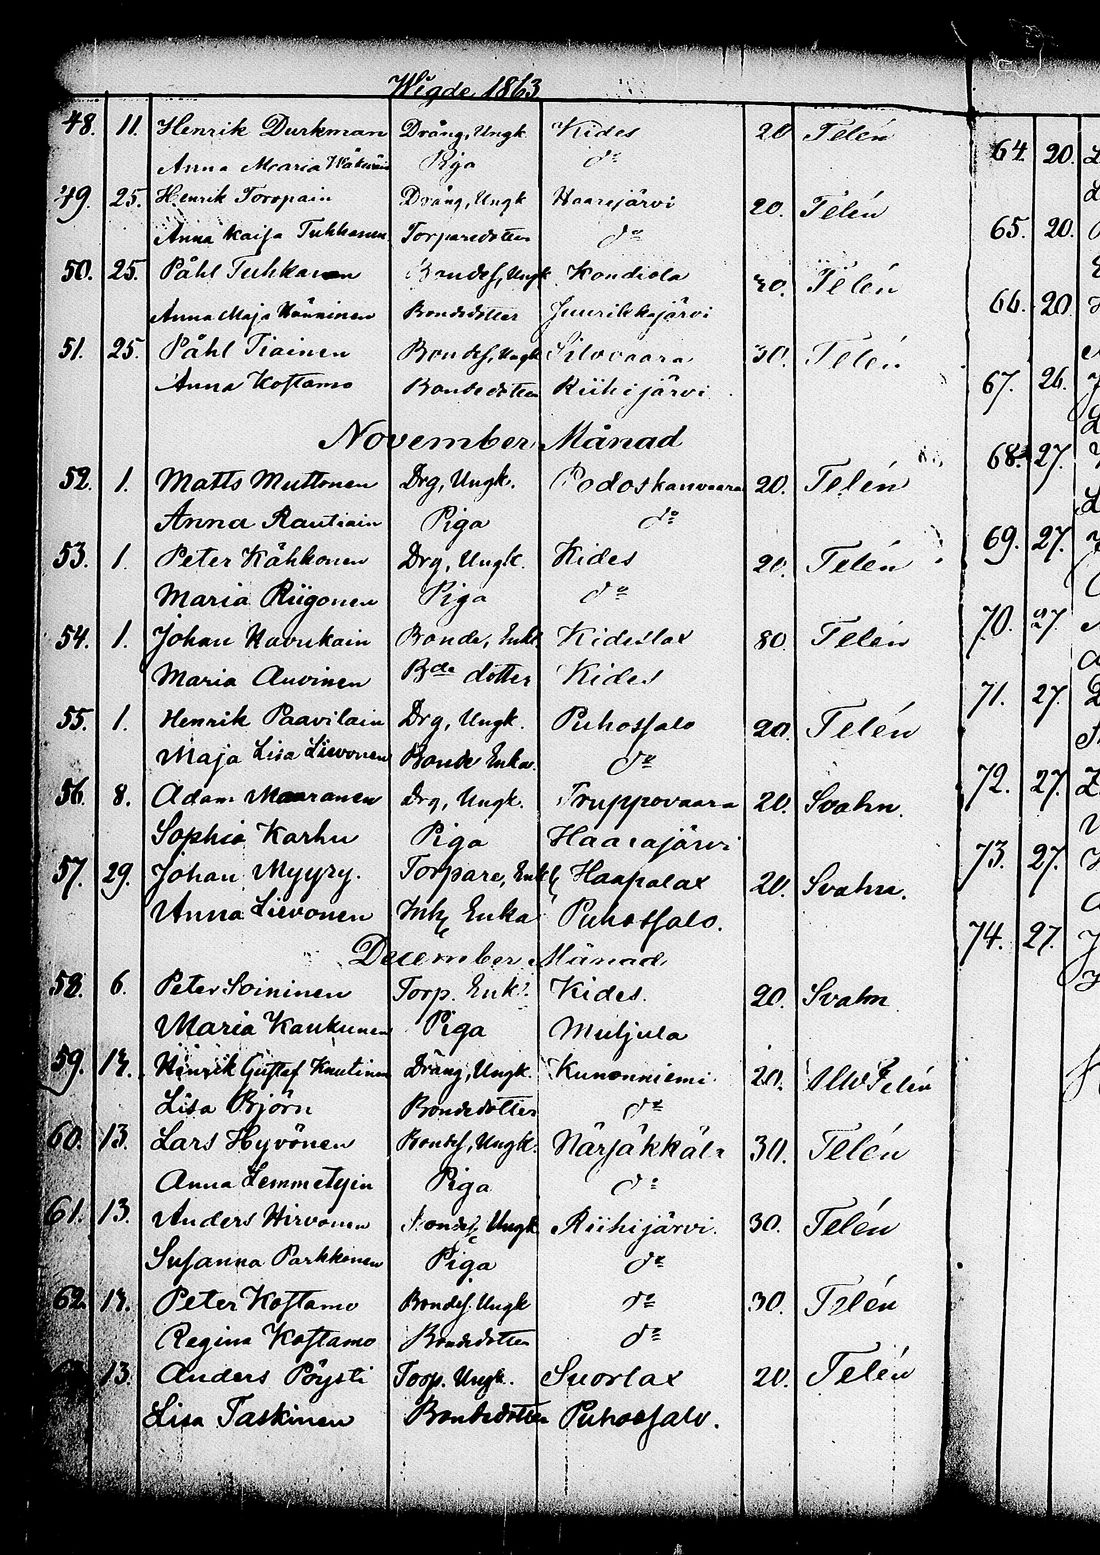 Wigde 1863
48. 11. Henrik Durkman Dräng, Ungk. Kides 20 Telén
Anna Maria Piga do
49. 25. Henrik Toropain Dräng, Ungk Haarajärvi 20. Telén
Anna Kaisa Tuhkanen Torparedotter do
50. 25. Påhl Tuhkanen Bondes., Ungk Kondiola 20. Telén
Anna Maja Könninen Bondedotter Juurikkajärvi
51. 25. Påhl Tiainen Bondes., Ungk Silovaara 30. Telén
Anna Kostamo Bondedotter Riihijärvi
November Månad
52. 1. Matts Muttonen Drg, Ungk. Podoskanvaara 20. Telén
Anna Rautiain Piga do
53. 1. Peter Kähkonen Drg, Ungk. Kides 20. Telén
Maria Riigonen Piga do
54. 1. Johan Havukain Bonde, Enkl. Kideslax 80. Telén
Maria Auvinen Bde dotter Kides
55. 1. Henrik Paavilain Drg, Ungk. Puhossalo 20. Telén
Maja Lisa Lievonen Bonde Enka. do
56. 8. Adam Maaranen Drg, Ungk. Truppovaara 20. Svahn.
Sophia Karhu Piga Haarajärvi
57. 29. Johan Myyry. Torpare, Enkl. Haapalax 20. Svahn.
Anna Lievonen Inh. Enka Puhossalo.
December Månad
58. 6. Peter Soininen Torp. Enkl. Kides. 20. Svahn
Maria Kaukunen Piga Muljula
59. Henrik Gustaf Knutinen Dräng, Ungk. Kunonniemi 20. Telén
Lisa Björn Bondedotter do
60. 13. Lars Hyvönen Bondes., Ungk. Närsäkkälä 30. Telén
Anna Lemmetyin Piga do
61. 13. Anders Hirvonen Bondes., Ungk Riihijärvi. 30. Telén
Susanna Parkkonen Piga do
62. Peter Kostamo Bondes. Ungk do 30. Telén
Regina Kostamo Bondedotter do
13. Anders Pöysti Torp. Ungk. Suorlax 20. Telén
Lisa Taskinen Bondedotter Puhossalo.
64. 20.
65. 20.
66. 20.
67. 26.
68. 27.
69. 27.
70. 27
71. 27.
72. 27.
73. 27.
74. 27.